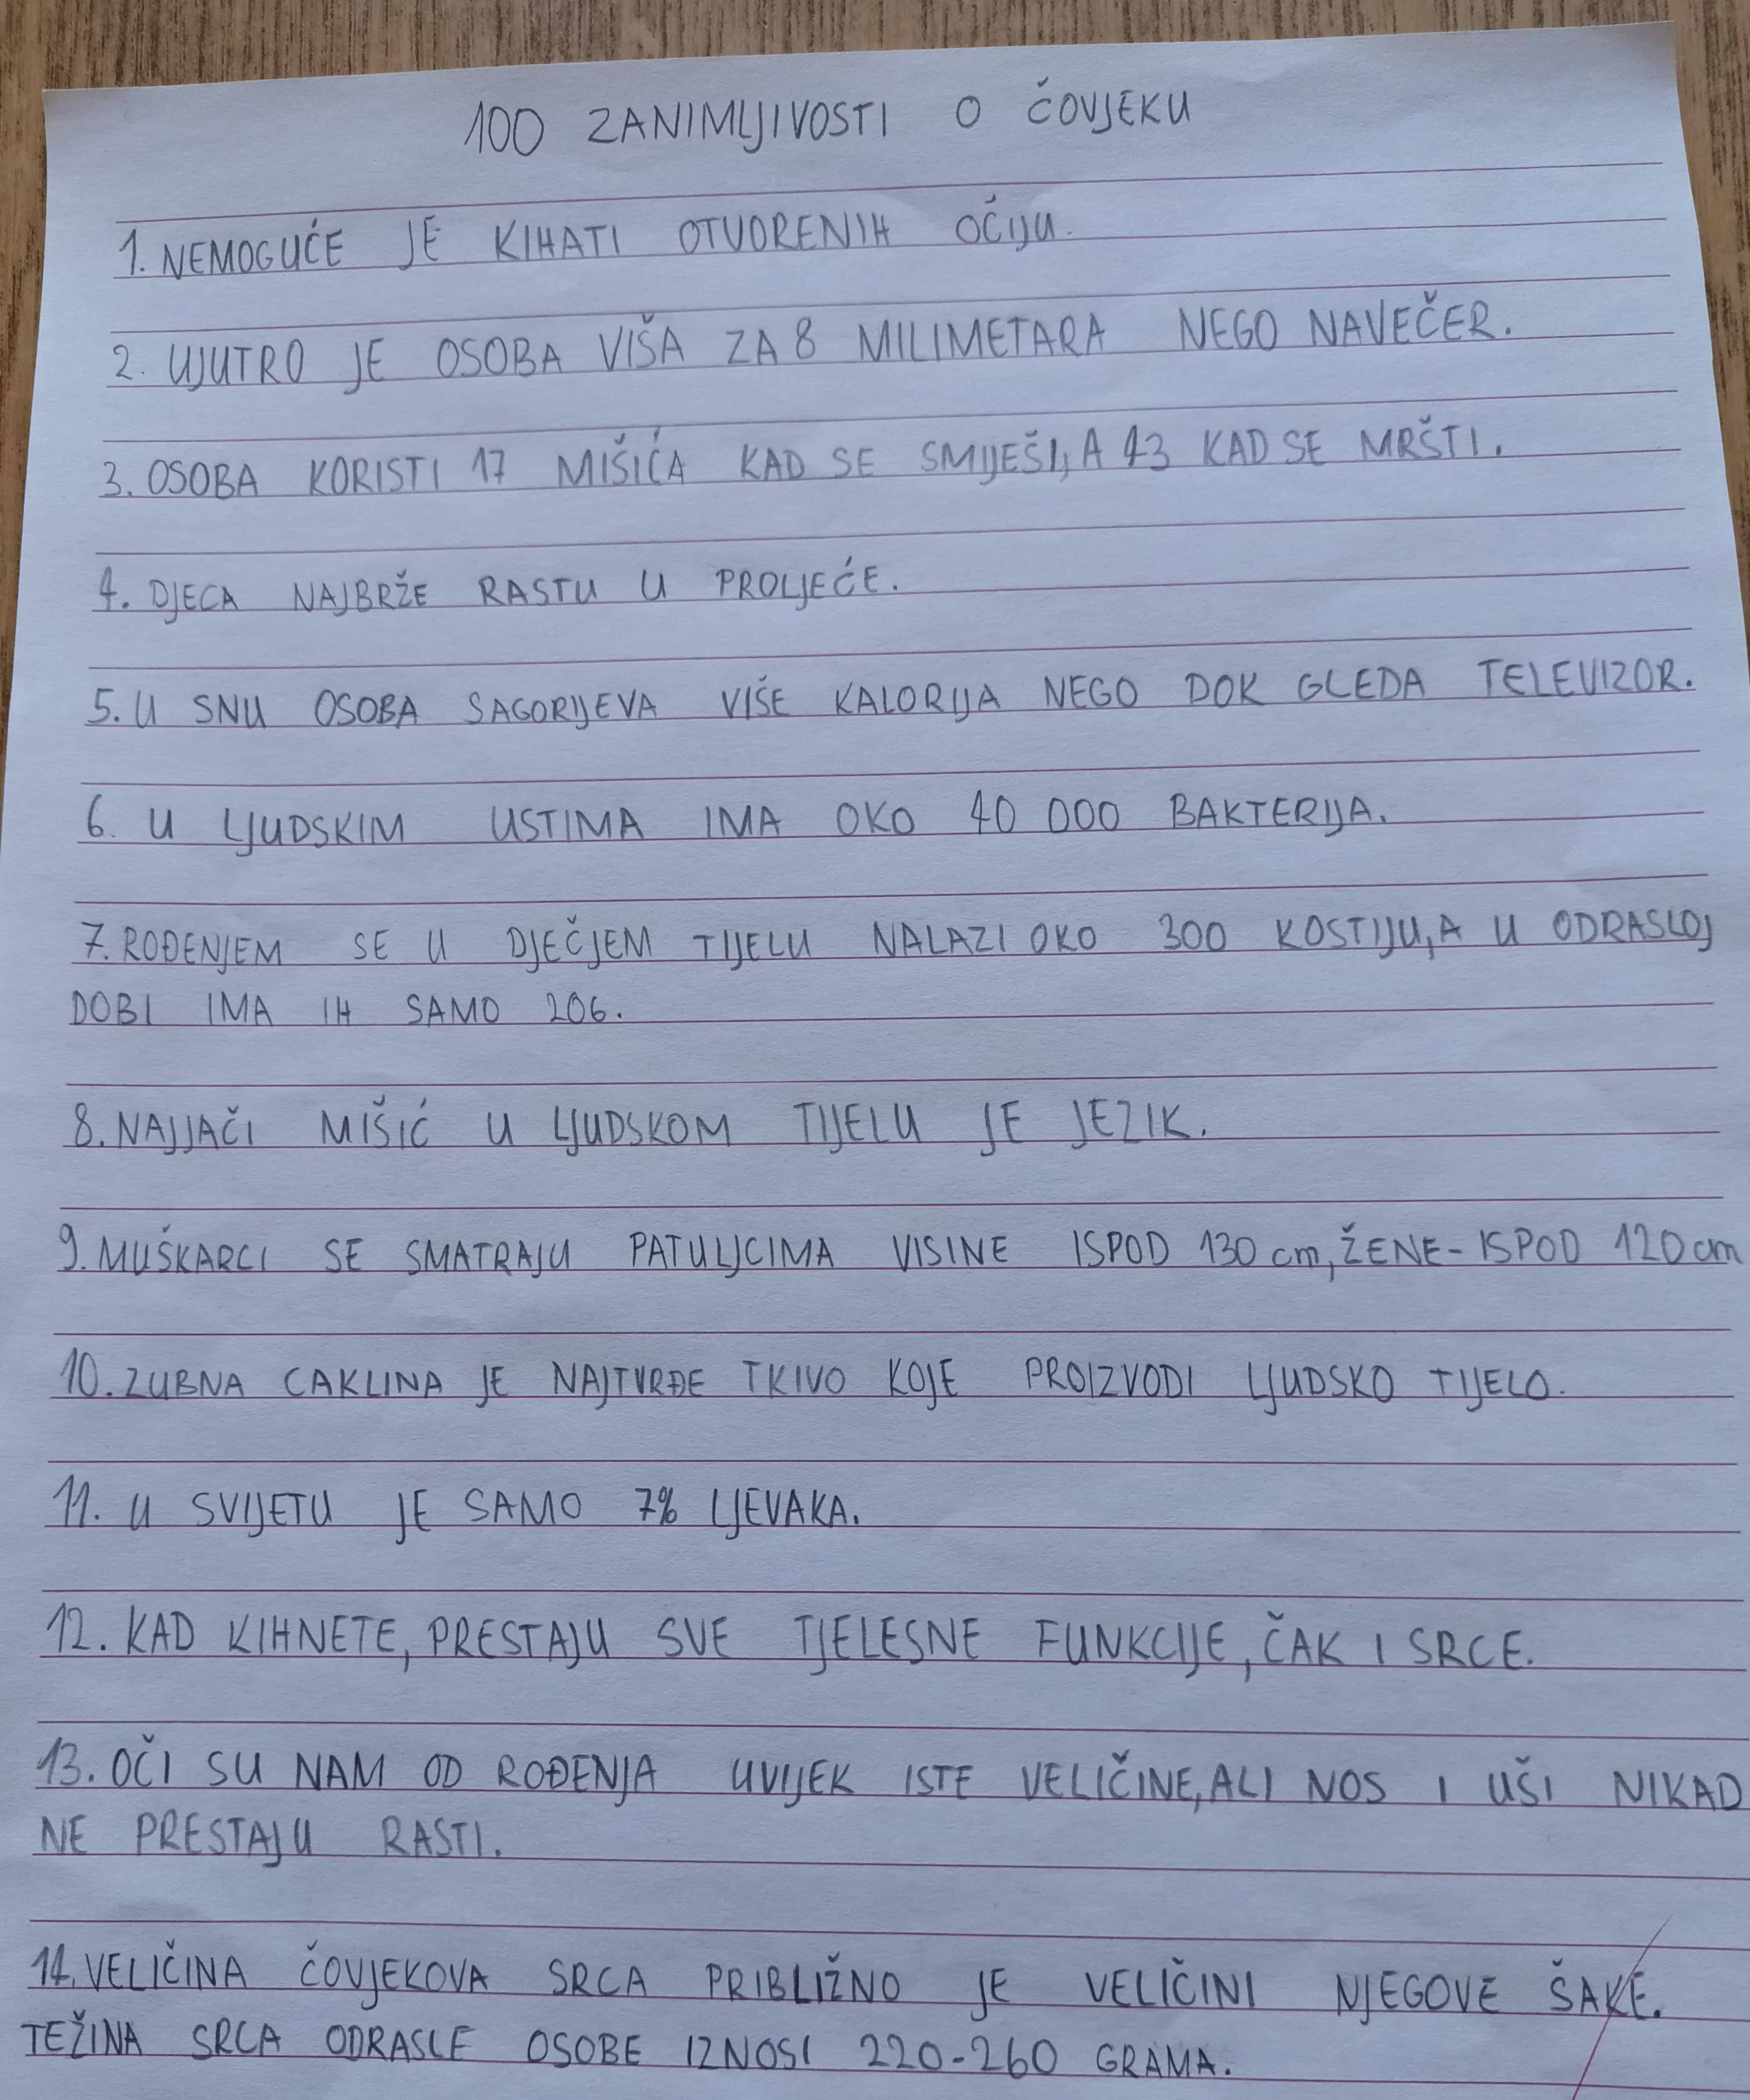 100 ZANIMLJIVOSTI O ČOVJEKU
1. NEMOGUĆE JE KIHATI OTVORENIH OČIJU.
2. UJUTRO JE OSOBA VIŠA ZA 8 MILIMETARA NEGO NAVEČER.
3. OSOBA KORISTI 17 MIŠIĆA KAD SE SMIJEŠI, A 43 KAD SE MRŠTI.
4. DJECA NAJBRŽE RASTU U PROLJEĆE.
5. U SNU OSOBA SAGORIJEVA VIŠE KALORIJA NEGO DOK GLEDA TELEVIZOR.
6. U LJUDSKIM USTIMA IMA OKO 40 000 BAKTERIJA.
7. ROĐENJEM SE U DJEČJEM TIJELU NALAZI OKO 300 KOSTIJU, A U ODRASLOJ
DOBI IMA IH SAMO 206.
8. NAJJAČI MIŠIĆ U LJUDSKOM TIJELU JE JEZIK.
9. MUŠKARCI SE SMATRAJU PATULJCIMA VISINE ISPOD 130 cm, ŽENE - ISPOD 120 cm
10. ZUBNA CAKLINA JE NAJTVRĐE TKIVO KOJE PROIZVODI LJUDSKO TIJELO.
11. U SVIJETU JE SAMO 7% LJEVAKA.
12. KAD KIHNETE, PRESTAJU SVE TJELESNE FUNKCIJE, ČAK I SRCE.
13. OČI SU NAM OD ROĐENJA UVIJEK ISTE VELIČINE, ALI NOS I UŠI NIKAD
NE PRESTAJU RASTI.
14. VELIČINA ČOVJEKOVA SRCA PRIBLIŽNO JE VELIČINI NJEGOVE ŠAKE.
TEŽINA SRCA ODRASLE OSOBE IZNOSI 220-260 GRAMA.